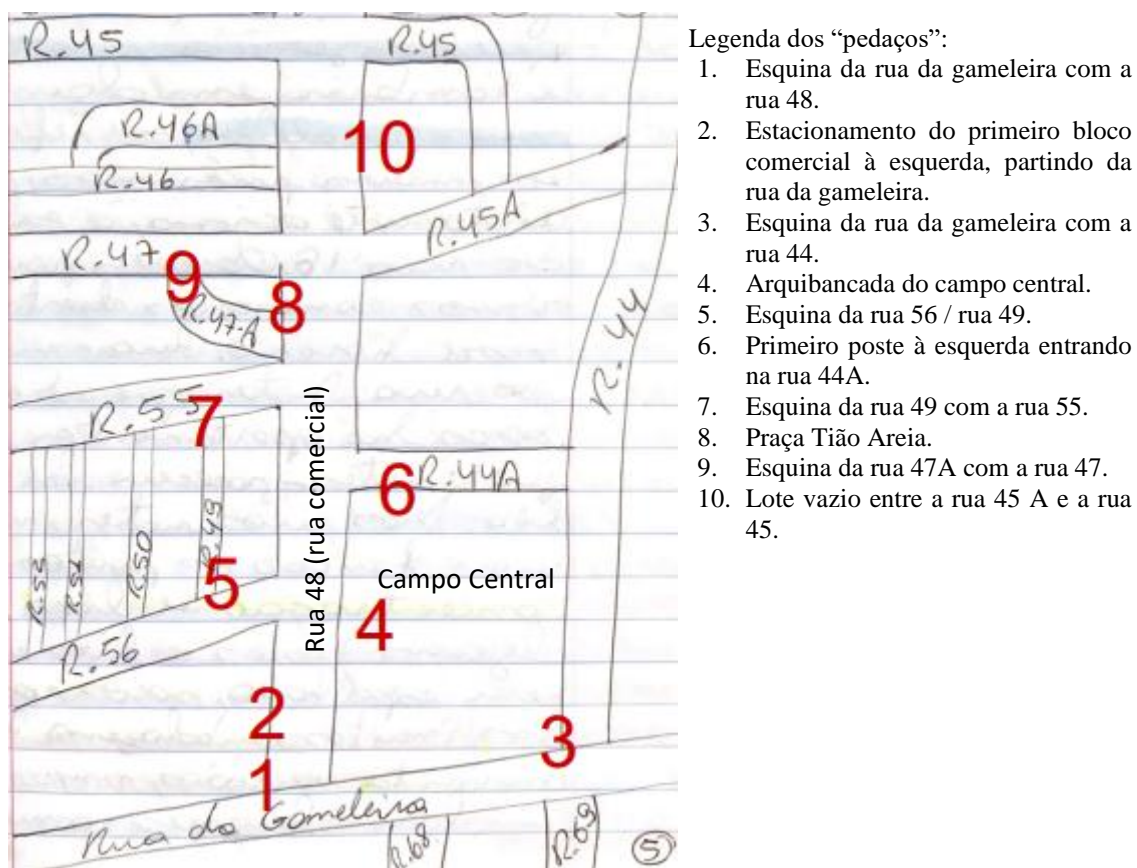 R.45
R.45
R.46A
10
R.46
R.45A
R.47
9
8
R.47-A
R.44
R.55
7
Rua 48 (rua comercial)
6
R.44A
R.49
R.50
5
Campo Central
4
R.56
2
3
1
Rua da Gameleira
R.68
R.69
5
Legenda dos “pedaços”:
1. Esquina da rua da gameleira com a
rua 48.
2. Estacionamento do primeiro bloco
comercial à esquerda, partindo da
rua da gameleira.
3. Esquina da rua da gameleira com a
rua 44.
4. Arquibancada do campo central.
5. Esquina da rua 56 / rua 49.
6. Primeiro poste à esquerda entrando
na rua 44A.
7. Esquina da rua 49 com a rua 55.
8. Praça Tião Areia.
9. Esquina da rua 47A com a rua 47.
10. Lote vazio entre a rua 45 A e a rua
45.